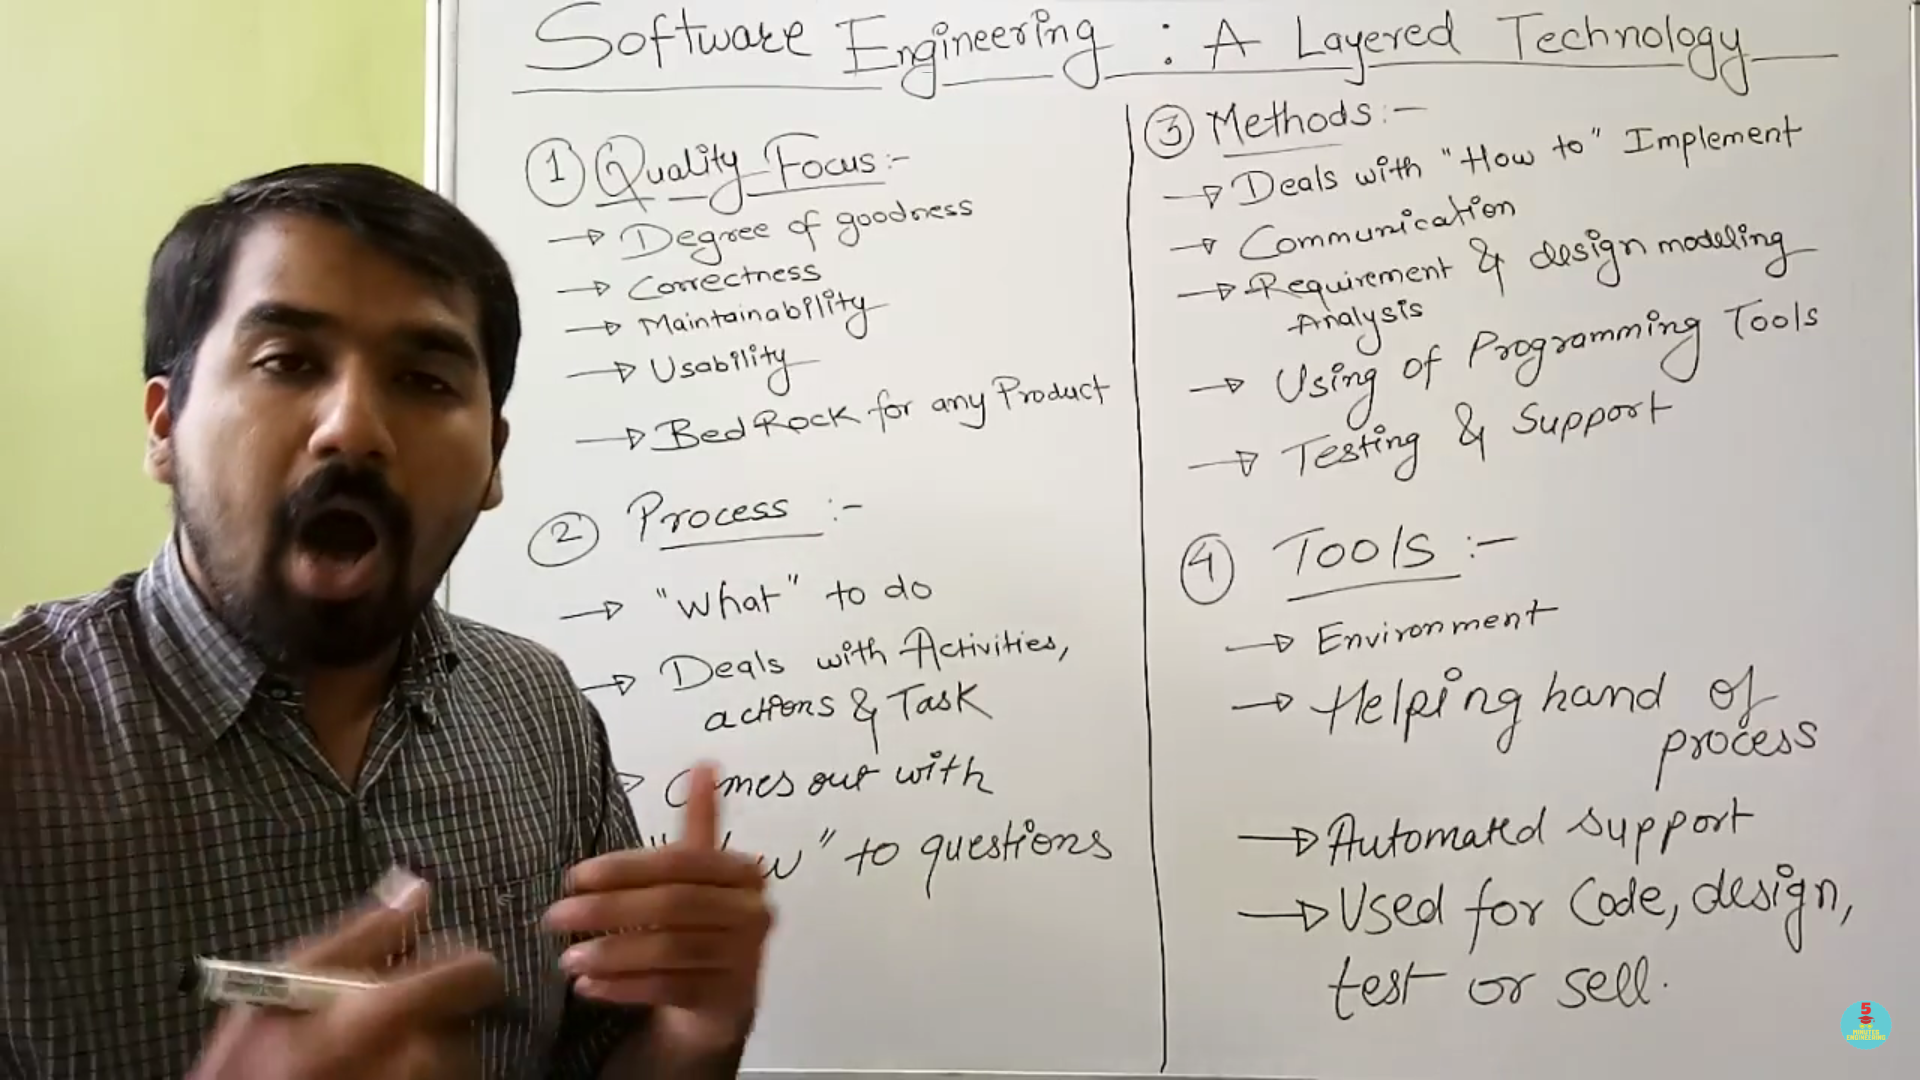 Software Engineering : A Layered Technology
① Quality Focus :-
→ Degree of goodness
→ Correctness
→ Maintainability
→ Usability
→ BedRock for any Product
② Process :-
→ "What" to do
→ Deals with Activities,
actions & Task
→ Comes out with
" " to questions
③ Methods :-
→ Deals with "How to" Implement
→ Communication
→ Requirement & design modeling
Analysis
→ Using of Programming Tools
→ Testing & Support
④ Tools :-
→ Environment
→ Helping hand of
process
→ Automated support
→ Used for Code, design,
test or sell.
5
MINUTES
ENGINEERING